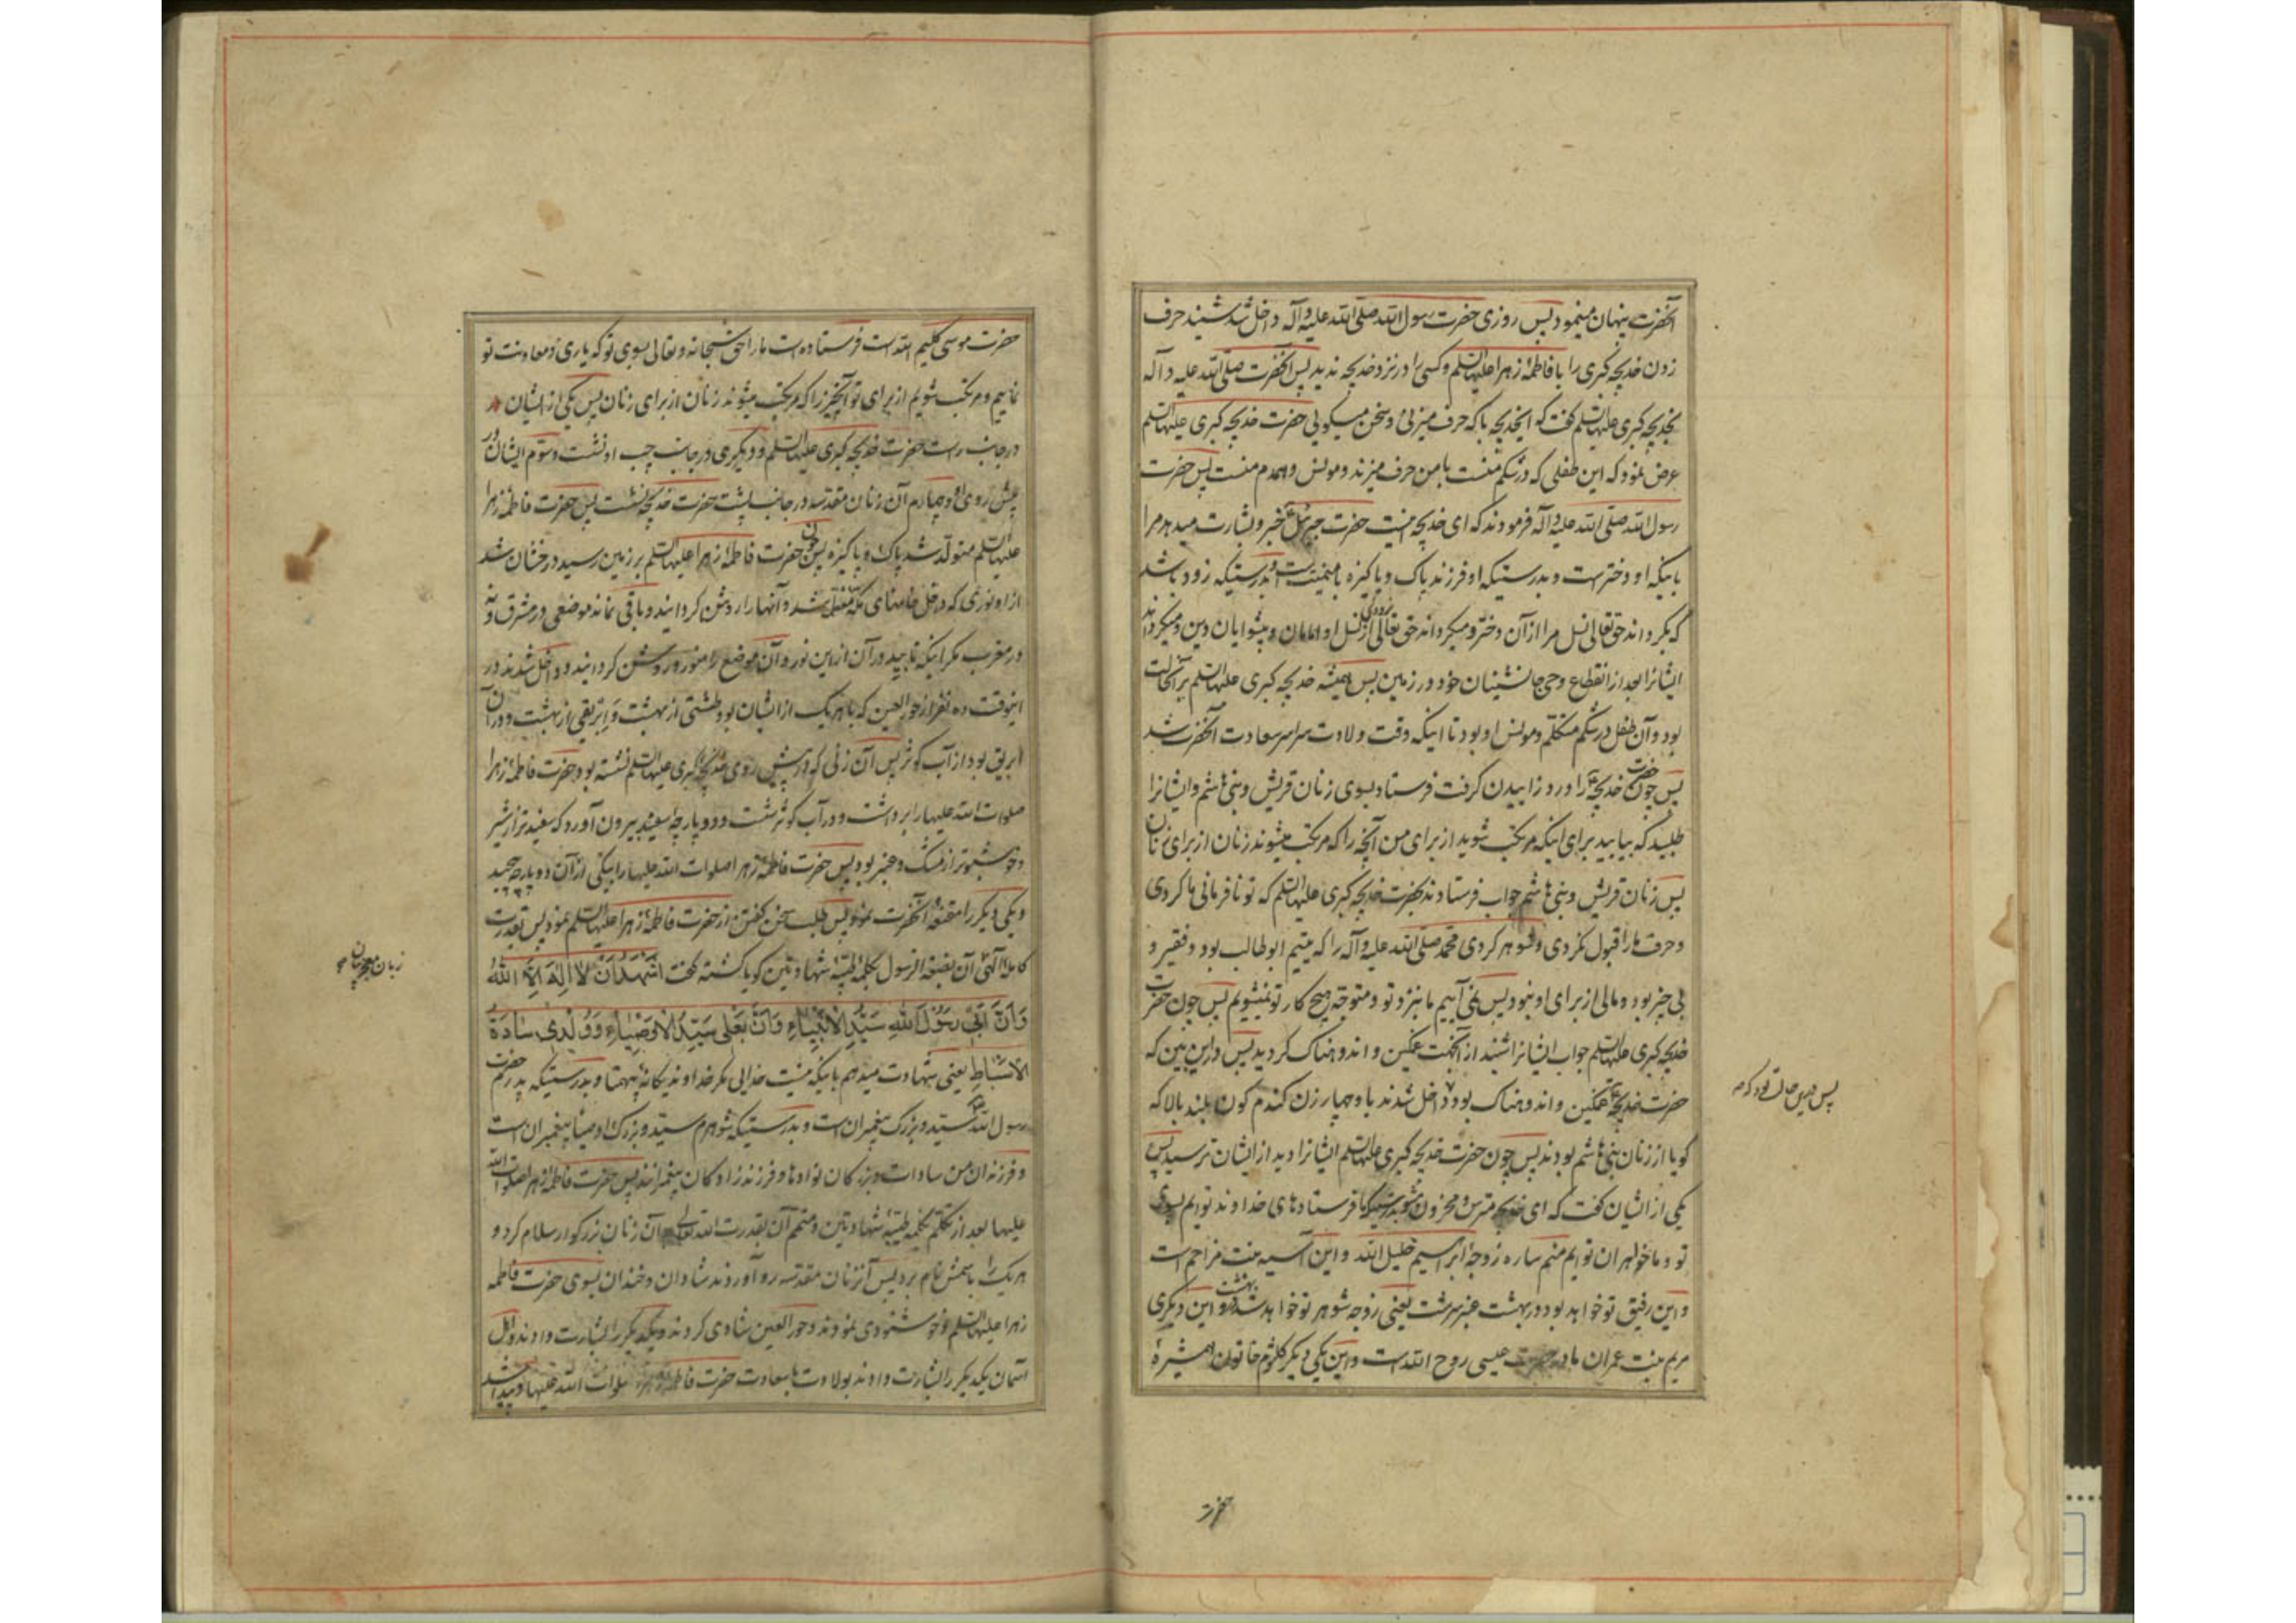 آنحضرت پنهان مینمود پس روزی حضرت رسول الله صلی الله علیه وآله داخل شد شنید حرف
زدن خدیجه کبری را با فاطمهٔ زهرا علیها السلم و کسی را در نزد خدیجه ندید پس آنحضرت صلی الله علیه و آله
بخدیجه کبری علیها السلم گفت که ایخدیجه با که حرف میزنی و سخن میگویی حضرت خدیجه کبری علیها السلم
عرض نمود که این طفلی که در شکم منست با من حرف میزند و مونس و همدم منست پس حضرت
رسول الله صلی الله علیه وآله فرمودند که ای خدیجه اینست حضرت جبرئیل ع خبر و بشارت میدهد مرا
باینکه او دختر است و بدرستیکه او فرزند پاک و پاکیزه با میمنت است و بدرستیکه زود باشد
که بگرداند حق تعالی نسل مرا از آن دختر و میگرداند حق تعالی از نسل او امامان و پیشوایان دین و میگرداند
ایشانرا بعد از انقطاع وحی جانشینان خود در زمین پس همیشه خدیجه کبری علیها السلم بر آنحالت
بود و آن طفل در شکم متکلم و مونس او بود تا اینکه وقت ولادت سراسر سعادت آنحضرت شد
پس چون حضرت خدیجه را درد زاییدن گرفت فرستاد بسوی زنان قریش و بنی هاشم و ایشانرا
طلبید که بیایید برای اینکه مرتکب شوید از برای من آنچه را که مرتکب میشوند زنان از برای زنان
پس زنان قریش و بنی هاشم جواب فرستادند بحضرت خدیجه کبری علیها السلم که تو نافرمانی ما کردی
و حرف ما را قبول نکردی و شوهر کردی محمد صلی الله علیه وآله را که یتیم ابوطالب بود و فقیر و
بی چیز بود و مالی از برای او نبود پس نمی آییم ما بنزد تو و متوجه هیچ کار تو نمیشویم پس چون حضرت
خدیجه کبری علیها السلم جواب ایشانرا شنید از آنجهت غمگین و اندوهناک گردید پس در این بین که
حضرت خدیجه غمگین و اندوهناک بود داخل شدند با و چهار زن گندم گون بلند بالا که
پس در این حالت بود که
گویا از زنان بنی هاشم بودند پس چون حضرت خدیجه کبری علیها السلم ایشانرا دید از ایشان ترسید پس
یکی از ایشان گفت که ای خدیجه مترس و محزون مشو بدرستیکه ما فرستادهای خداوند توایم بسوی
تو و ما خواهران توایم منم ساره زوجهٔ ابراهیم خلیل الله و این آسیه بنت مزاحم است
و این رفیق تو خواهد بود در بهشت عنبر سرشت یعنی زوجه شوهر تو خواهد شد در بهشت و این دیگری
مریم بنت عمران مادر حضرت عیسی روح الله است و این یکی دیگر کلثوم خاتون همشیرهٔ
حضرت
حضرت موسی کلیم الله است فرستاده است ما را حق سبحانه و تعالی بسوی تو که یاری و معاونت تو
نماییم و مرتکب شویم از برای تو آنچیز را که مرتکب میشوند زنان از برای زنان پس یکی از ایشان
در جانب راست حضرت خدیجه کبری علیها السلم و دیگری در جانب چپ او نشست و سوم ایشان در
پیش روی او و چهارم آن زنان مقدسه در جانب پشت حضرت خدیجه نشست پس حضرت فاطمهٔ زهرا
علیها السلم متولد شد پاک و پاکیزه پس چون حضرت فاطمهٔ زهرا علیها السلم بر زمین رسید درخشان شد
از او نوری که داخل خانهای مکه معظمه شد و آنها را روشن گردانید و باقی نماند موضعی در مشرق و نه
در مغرب مگر اینکه تابید در آن از این نور و آن موضع را منور و روشن گردانید و داخل شدند در
اینوقت ده نفر از حور العین که با هر یک از ایشان بود طشتی از بهشت و ابریقی از بهشت و در آن
ابریق بود از آب کوثر پس آن زنی که در پیش روی خدیجه کبری علیها السلم نشسته بود حضرت فاطمهٔ زهرا
صلوات الله علیها را برداشت و در آب کوثر شست و دو پارچهٔ سفید بیرون آورد که سفید تر از شیر
و خوشبوتر از مشک و عنبر بود پس حضرت فاطمهٔ زهرا صلوات الله علیها را بیکی از آن دو پارچه پیچید
و یکی دیگر را مقنعهٔ آنحضرت نمود پس طلب سخن گفتن از حضرت فاطمهٔ زهرا علیها السلم نمود پس بقدرت
کاملهٔ الهی آن بضعة الرسول بکلمهٔ طیبهٔ شهادتین گویا گشته گفت اَشْهَدُ اَنْ لا اِلهَ اِلاَّ اللهُ
زبان معجز بیان
وَاَنَّ اَبی رَسُولُ اللهِ سَیِّدُ الاَنْبِیاءِ وَاَنَّ بَعْلی سَیِّدُ الاَوْصِیاءِ وَوُلْدی سادَةُ
الاَسْباطِ یعنی شهادت میدهم باینکه نیست خدایی مگر خداوند یگانهٔ بیهمتا و بدرستیکه پدرم حضرت
رسول الله سید و بزرگ پیغمبران است و بدرستیکه شوهرم سید و بزرگ اوصیاء پیغمبران است
و فرزندان من سادات و بزرگان نوادها و فرزند زادگان پیغمبرانند پس حضرت فاطمهٔ زهرا صلوات الله
علیها بعد از تکلم بکلمهٔ طیبهٔ شهادتین و متمم آن بقدرت الله تعالی آن زنان بزرگوار سلام کرد و
هر یک را باسمش نام برد پس آنزنان مقدسه رو آوردند شادان و خندان بسوی حضرت فاطمه
زهرا علیها السلم و خوشنودی نمودند و حور العین شادی کردند و یکدیگر را بشارت دادند و اهل
آسمان یکدیگر را بشارت دادند بولادت با سعادت حضرت فاطمه زهرا صلوات الله علیها و پیدا شد